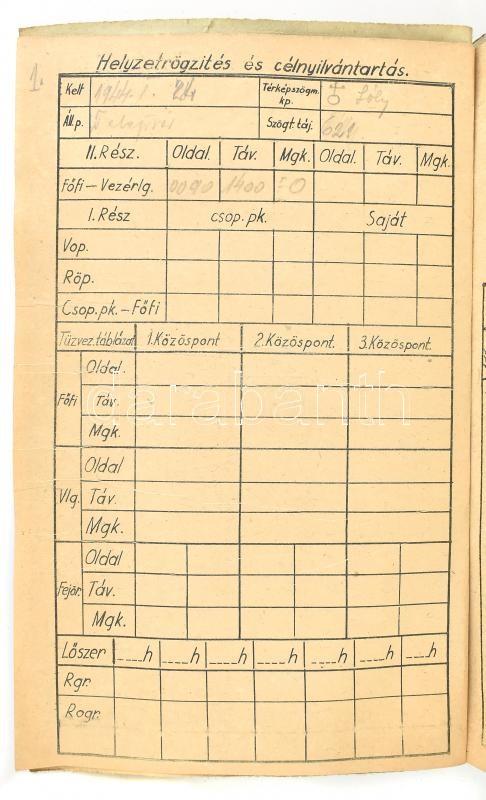 1.
Helyzetrögzítés és célnyilvántartás.
Kelt 1944. I. 24. Térképszögm. kp. Sóly
Áll.p. Szögf. táj. 621
II. Rész. Oldal. Táv. Mgk. Oldal. Táv. Mgk.
Főfi – Vezérlg. 0090 1400 ± 0
I. Rész csop. pk. Saját
Vop.
Röp.
Csop. pk. – Főfi
Tűzvez. táblázat 1. Központ 2. Központ. 3. Központ.
Főfi Oldal.
Táv.
Mgk.
Vlg. Oldal
Táv.
Mgk.
Fejör. Oldal
Táv.
Mgk.
Lőszer ____h ____h ____h ____h ____h ____h ____h
Rgr.
Rogr.
darabanth